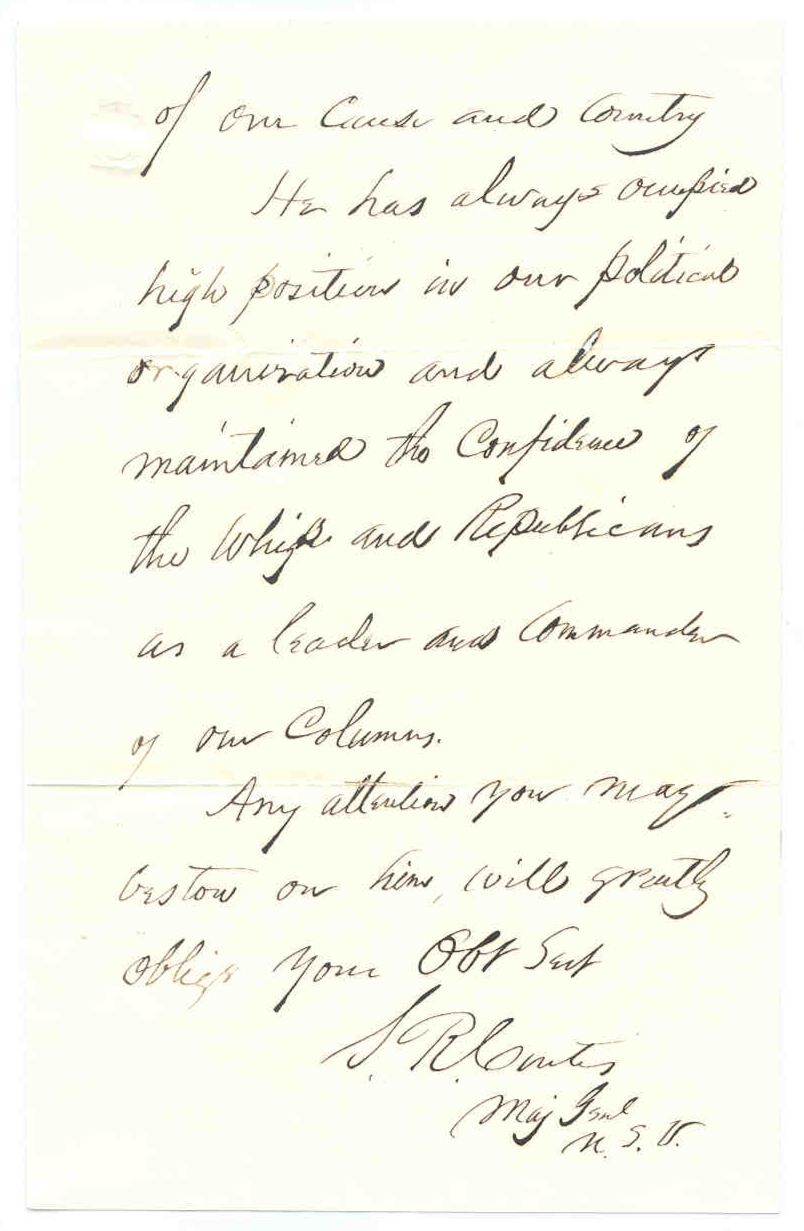 of our Cause and Country
He has always occupied
high position in our political
organization and always
maintained the Confidence of
the Whigs and Republicans
as a leader and Commander
of our Columns.
Any attention you may
bestow on him, will greatly
oblige your Obt Svt
S. R. Curtis
Maj Genl
U. S. V.